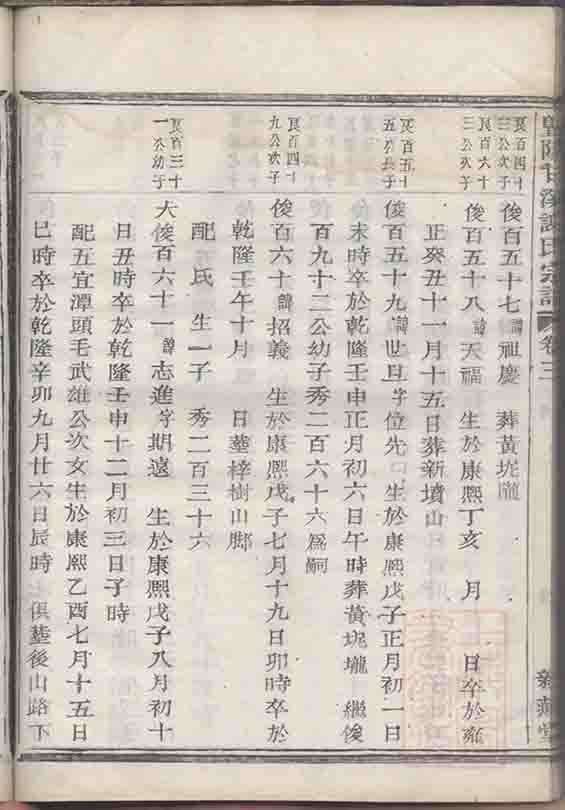 皇陵甘溪謝氏宗譜 卷三
良百四十三公次子
俊百五十七諱祖慶 葬黃垅隴
良百六十三公次子
俊百五十八諱天福 生於康熙丁亥 月 日卒於雍
正癸丑十一月十五日葬新墳山
良百五十五公長子
俊百五十九諱世旦字位先 生於康熙戊子正月初一日
未時卒於乾隆壬申正月初六日午時葬黃垅壠 繼俊
百九十二公幼子秀二百六十六為嗣
良百四十九公次子
俊百六十諱招義 生於康熙戊子七月十九日卯時卒於
乾隆壬午十月 日塟梓樹山腳
配 氏 生一子 秀二百三十六
良百三十一公幼子
大俊百六十一諱志進字期遠 生於康熙戊子八月初十
日丑時卒於乾隆壬申十二月初三日子時
配五宜潭頭毛武雄公次女生於康熙乙酉七月十五日
巳時卒於乾隆辛卯九月廿六日辰時 俱塟後山路下